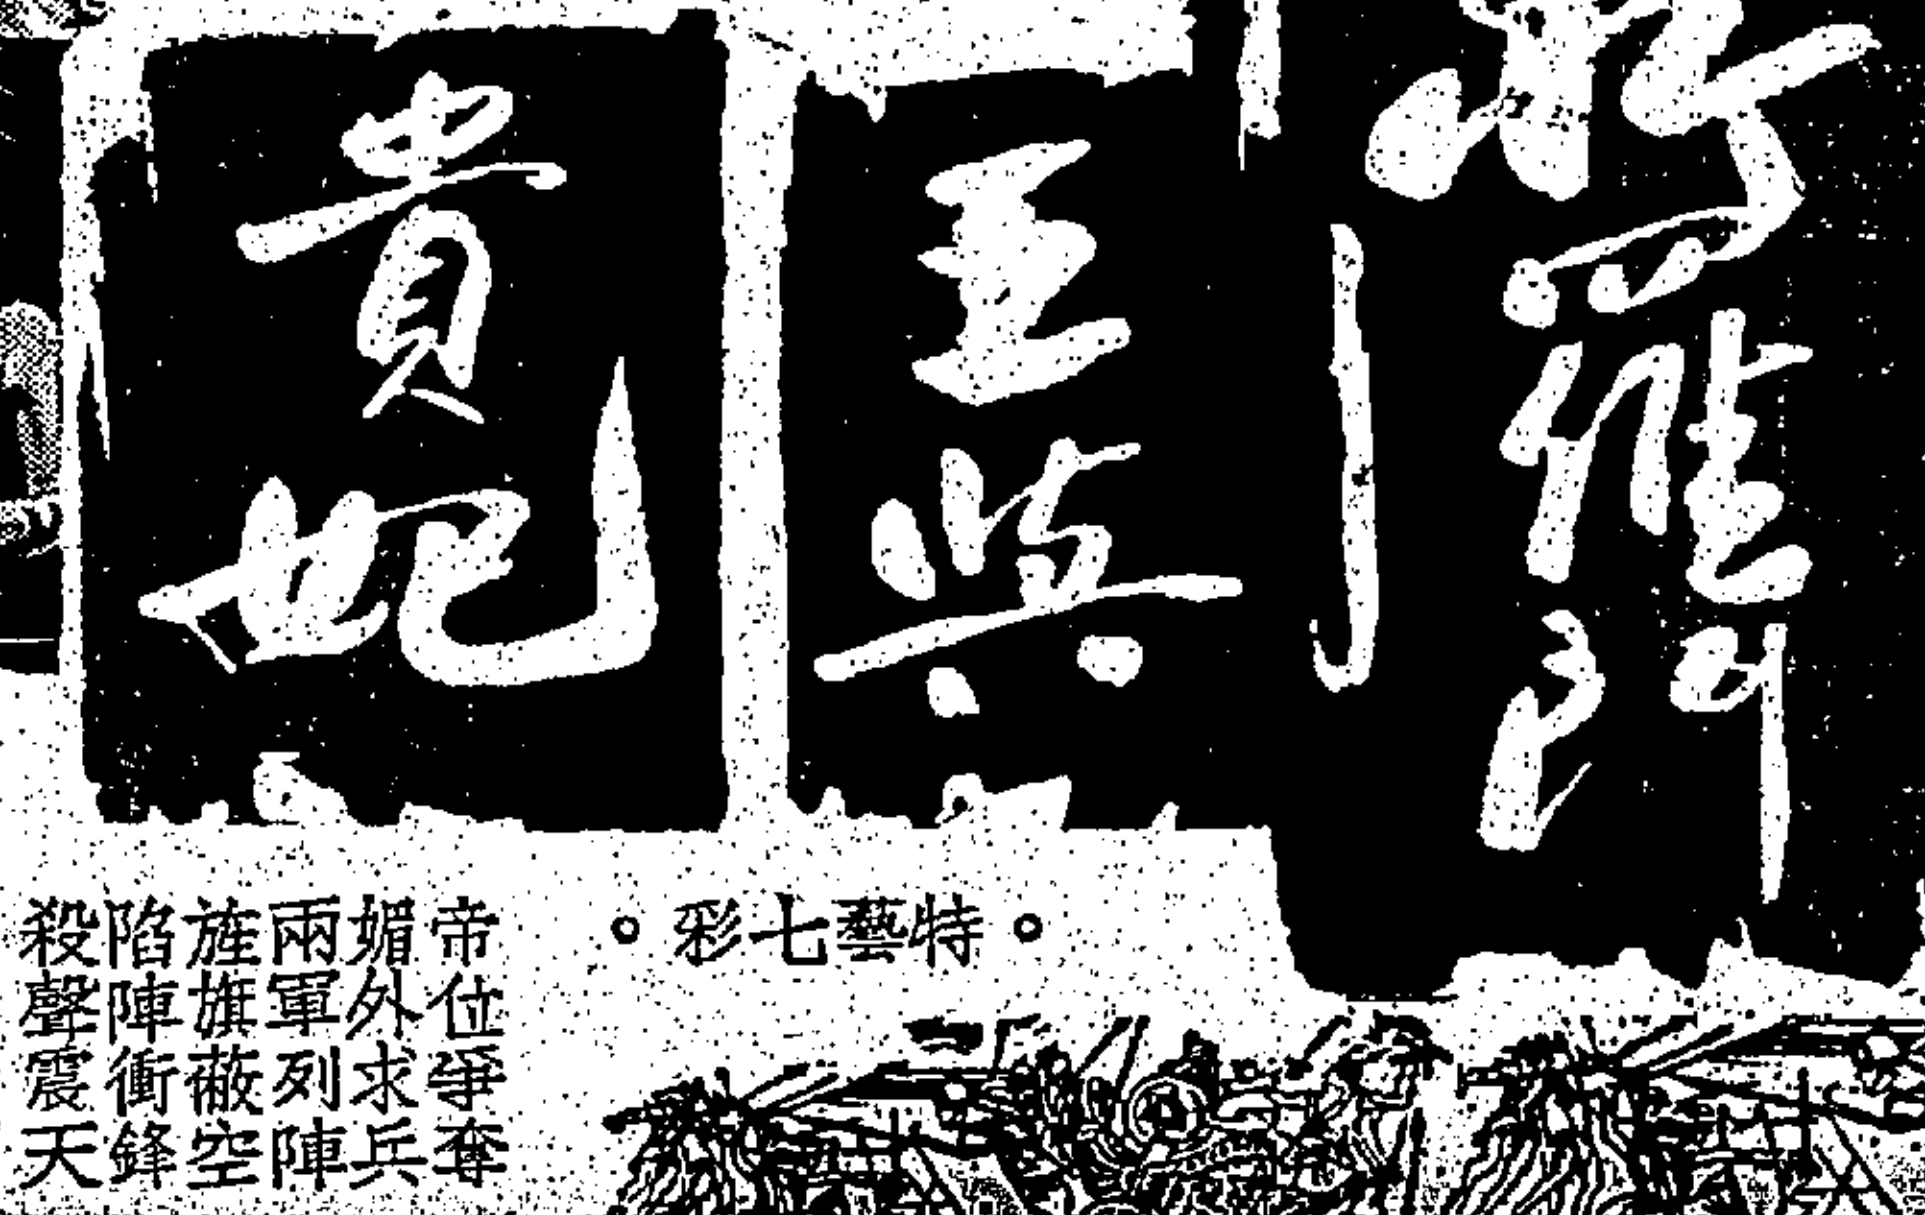 羅
王與
貴妃
。特藝七彩。
帝位爭奪
媚外求兵
兩軍列陣
旌旗蔽空
陷陣衝鋒
殺聲震天